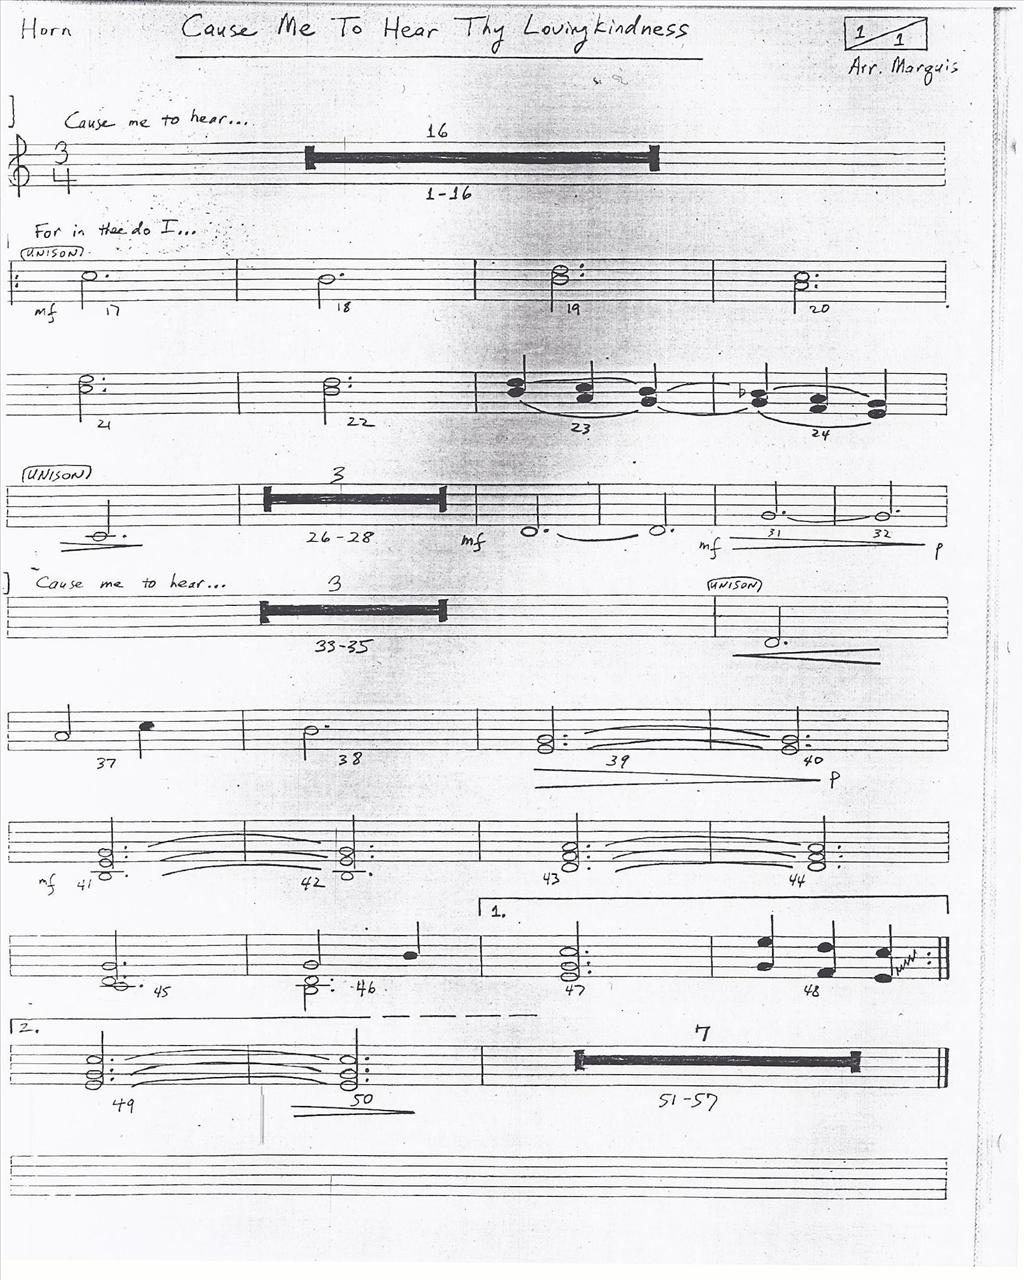 Horn
Cause Me To Hear Thy Lovingkindness
1/1
Arr. Marquis
Cause me to hear...
3
4
16
1-16
For in thee do I...
UNISON
mf 17 18 19 20
21 22 23 24
UNISON
3
26-28 mf mf 31 32 p
Cause me to hear...
3
UNISON
33-35
37 38 39 40 p
mf 41 42 43 44
1.
45 46 47 48
2.
7
49 50 51-57